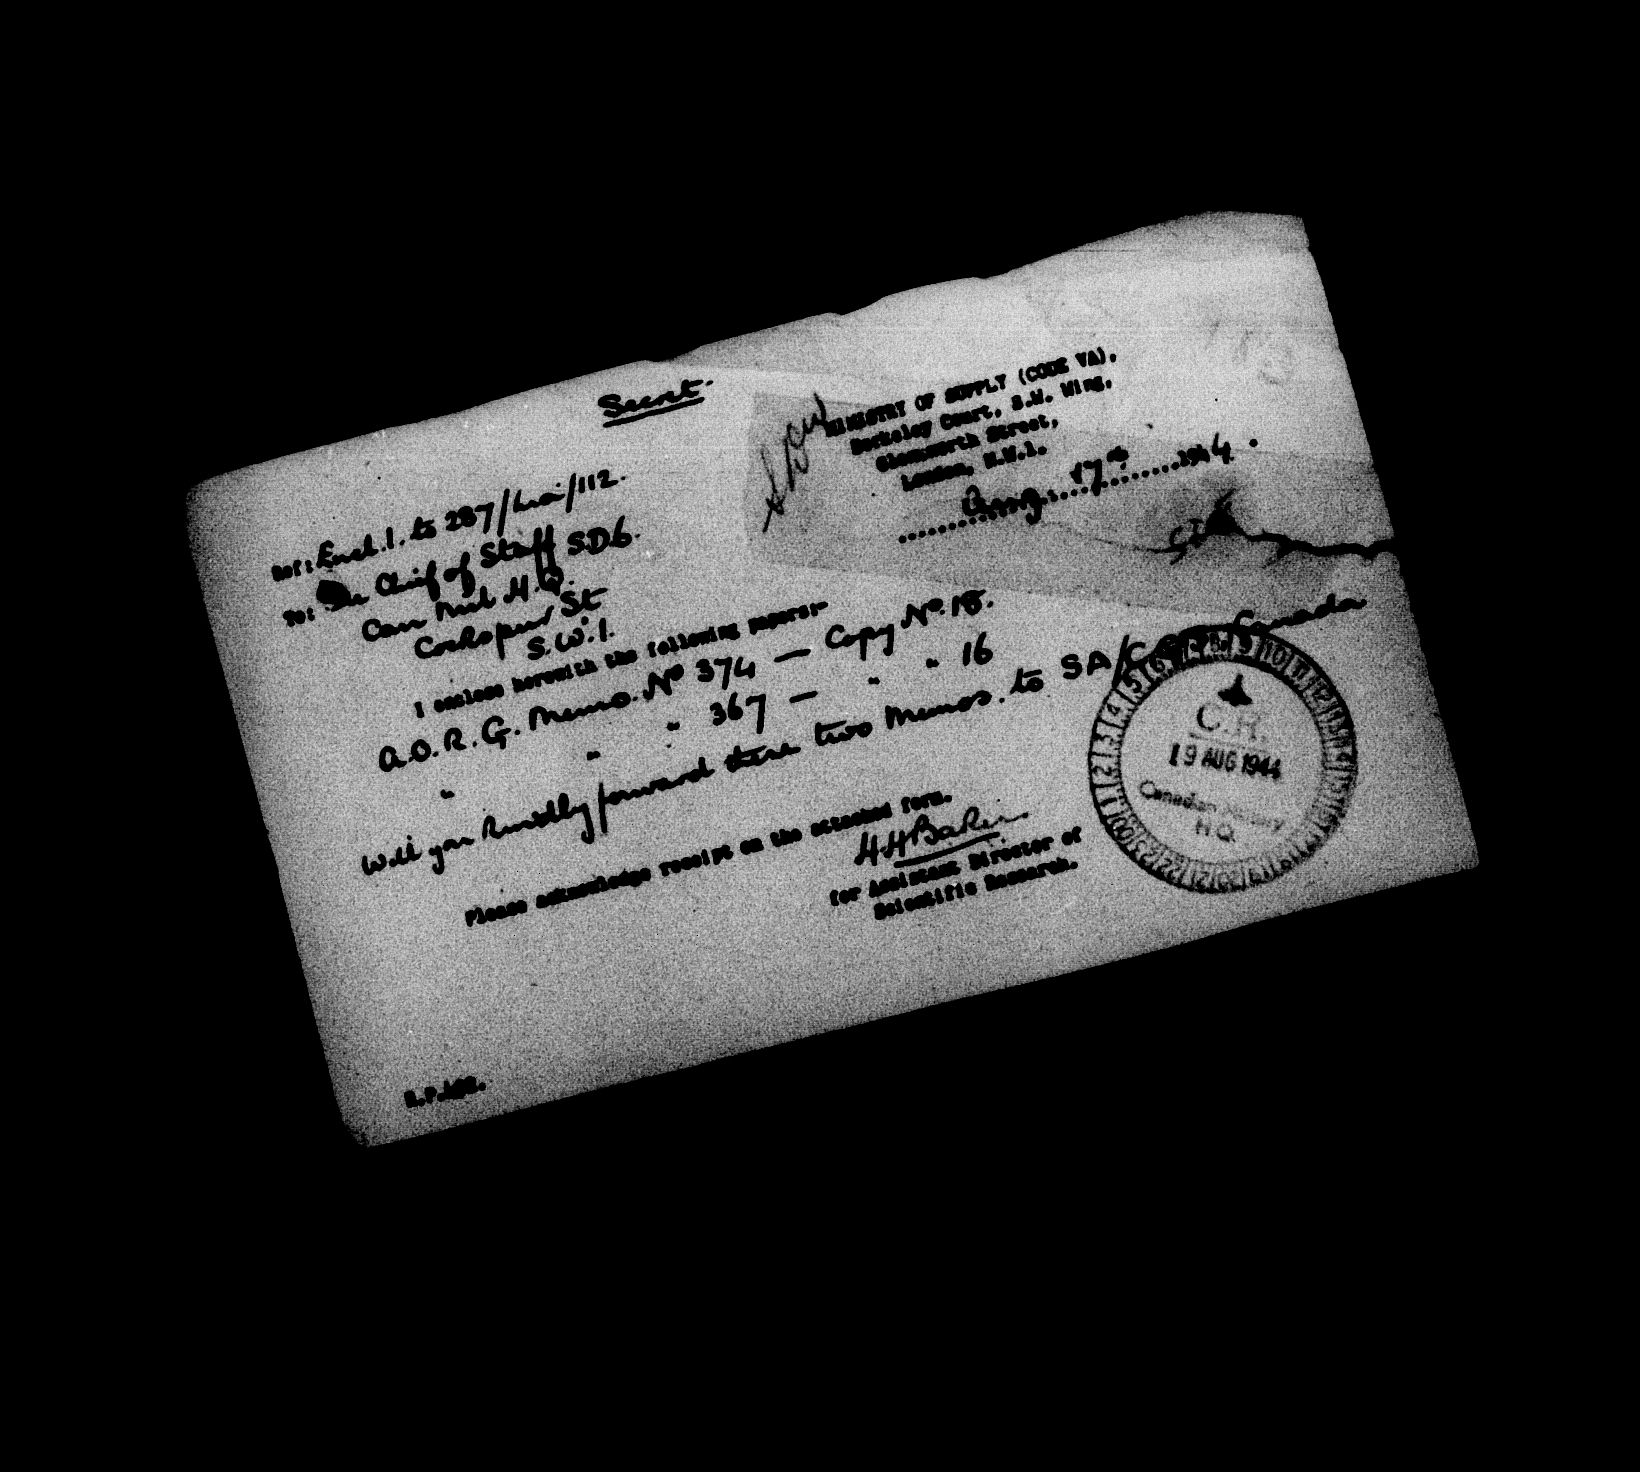 Secret.
MINISTRY OF SUPPLY (CODE VA),
Berkeley Court, S.W. Wing,
Glentworth Street,
London, N.W.1.
Aug. 17th 1944.
Ref: Encl. 1. to 287/ /112.
To: The Chief of Staff SD6.
Can Mil H.Q.
Cockspur St
S.W.1.
I enclose herewith the following papers:-
A.O.R.G. Memo. No 374 — Copy No. 18.
" " 367 — " " 16
Will you kindly forward these two Memos. to SA/ Canada
C.R.
19 AUG 1944
Canadian Military
HQ
Please acknowledge receipt on the attached form.
HHBaker.
for Assistant Director of
Scientific Research.